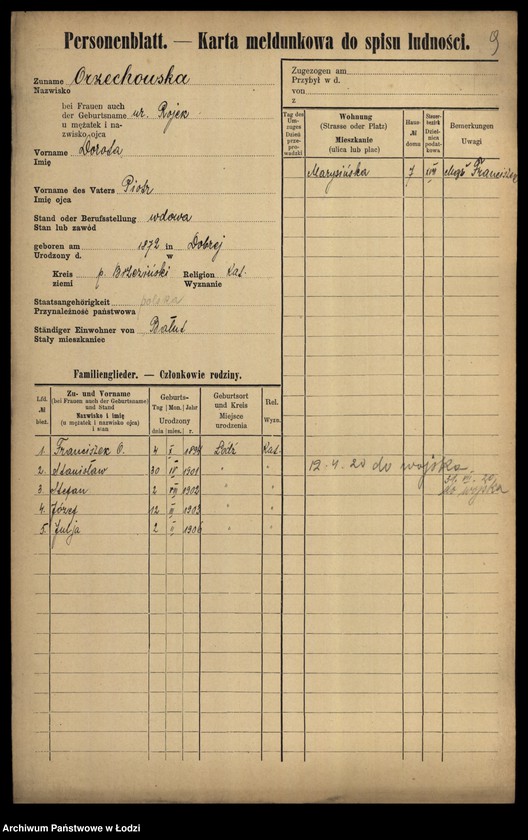 Personenblatt. — Karta meldunkowa do spisu ludności.
9
Zuname Orzechowska
Nazwisko
bei Frauen auch
der Geburtsname ur. Rojek
u mężatek i na-
zwisko ojca
Vorname Dorota
Imię
Vorname des Vaters Piotr
Imię ojca
Stand oder Berufsstellung wdowa
Stan lub zawód
geboren am 1872 in Dobrej
Urodzony d. w
Kreis p. Brzeziński Religion Kat.
ziemi Wyznanie
Staatsangehörigkeit polska
Przynależność państwowa
Ständiger Einwohner von Bałut
Stały mieszkaniec
Familienglieder. — Członkowie rodziny.
Lfd. № bież.
Zu- und Vorname
(bei Frauen auch der Geburtsname)
und Stand
Nazwisko i imię
(u mężatek i nazwisko ojca)
i stan
Geburts-
Tag Mon. Jahr
Urodzony
dnia mies. r.
Geburtsort
und Kreis
Miejsce
urodzenia
Rel.
Wyzn.
1. Franciszek O. 4 X 1894 Łódź Kat.
2. Stanisław 30 IV 1901 " "
3. Stefan 2 VIII 1902 " "
4. Józef 12 1903 " "
5. Julja 2 1906 " "
Zugezogen am
Przybył w d.
von
z
Tag des
Um-
zuges
Dzień
prze-
prowadzki
Wohnung
(Strasse oder Platz)
Mieszkanie
(ulica lub plac)
Haus-
№
domu
Steuer-
bezirk
Dziel-
nica
podat-
kowa
Bemerkungen
Uwagi
Marysińska 7 Franciszek
12-4-20 do wojska.
do wojska
Archiwum Państwowe w Łodzi